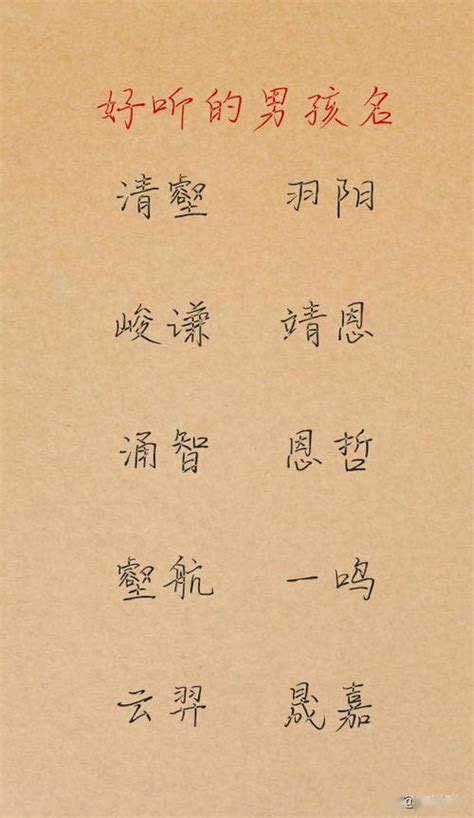 好听的男孩名
清壡 羽阳
峻谦 靖恩
涌智 恩哲
壡航 一鸣
云羿 晟嘉
@